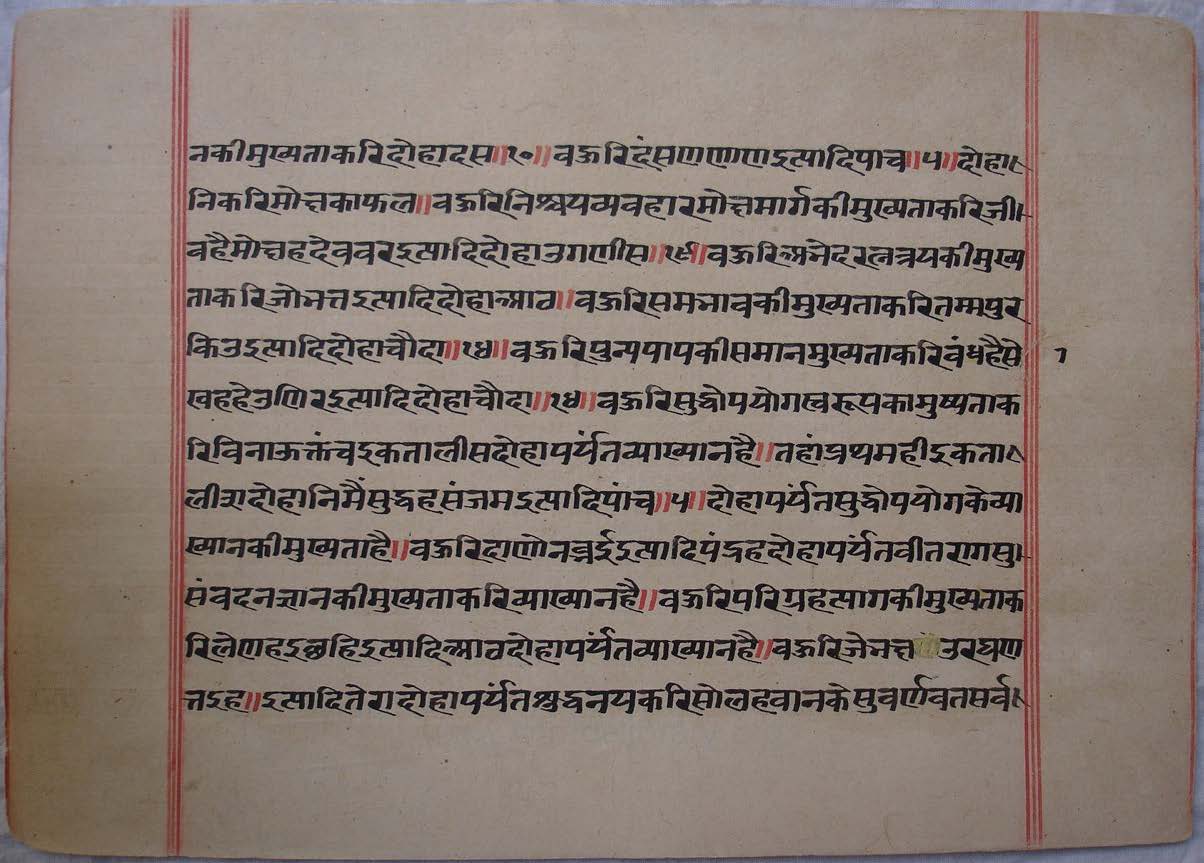 नकीमुख्यताकरिदोहादस॥१०॥वऊरिदंसणणाणइत्यादिपाच॥५॥दोहा
निकरिमोक्षकाफल॥वऊरिनिश्चयव्यवहारमोक्षमार्गकीमुख्यताकरिजी
वहैमोक्षहदेववरइत्यादिदोहाउगणीस॥१९॥वऊरिअभेदरत्नत्रयकीमुख्य
ताकरिजोभत्तइत्यादिदोहाआठ॥वऊरिसमभावकीमुख्यताकरितम्मपुर
किउइत्यादिदोहाचौदा॥१४॥वऊरिपुन्यपापकीसमानमुख्यताकरिवंधहैसे
खहहेउणिरइत्यादिदोहाचौदा॥१४॥वऊरिसुद्धोपयोगस्वरूपकामुष्यताक
रिविनाऊक्तंचइकतालीसदोहापर्यंतव्याख्यानहै॥तहांप्रथमहीइकता
लीशदोहानिमैंसुद्धहसंजमइत्यादिपांच॥५॥दोहापर्यंतसुद्धोपयोगकेव्या
ख्यानकीमुख्यताहै॥वऊरिदाणेनब्भईइत्यादिपंद्रहदोहापर्यंतवीतरागसु
संवदनज्ञानकीमुख्यताकरिव्याख्यानहै॥वऊरिपरिग्रहत्यागकीमुख्यताक
रिलेणहइछहिइत्यादिआठदोहापर्यंतव्याख्यानहै॥वऊरिजेभत्त उरयण
त्तइह॥इत्यादितेरादोहापर्यंतशुद्धनयकरिसोलहवानकेसुवर्णवतसर्व